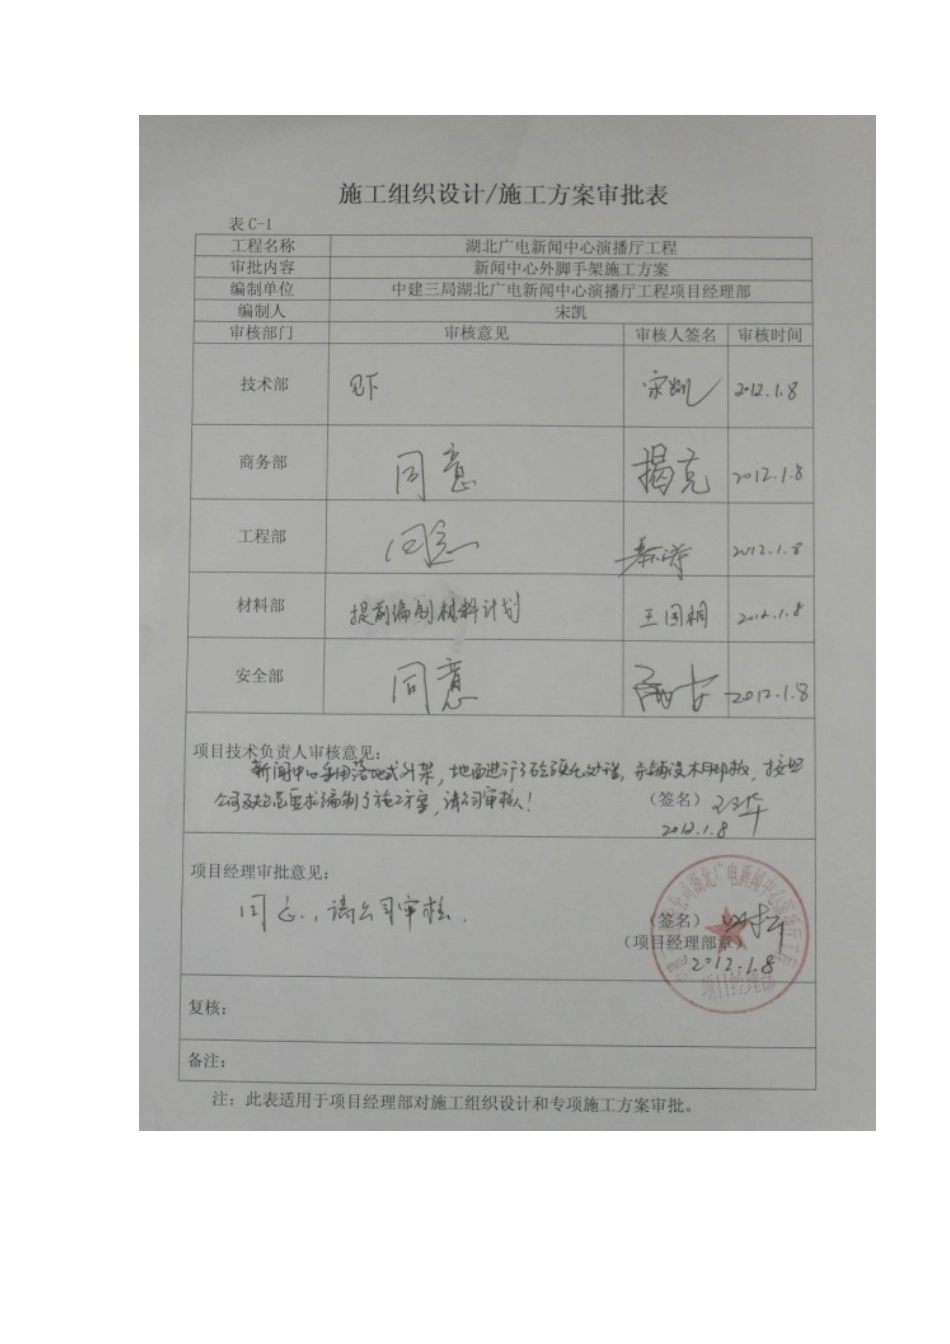 施工组织设计/施工方案审批表
表 C-1
工程名称 湖北广电新闻中心演播厅工程
审批内容 新闻中心外脚手架施工方案
编制单位 中建三局湖北广电新闻中心演播厅工程项目经理部
编制人 宋凯
审核部门 审核意见 审核人签名 审核时间
技术部 见下 宋凯 2012.1.8
商务部 同意 揭克 2012.1.8
工程部 同意 秦涛 2012.1.8
材料部 提前编制材料计划 王国桐 2012.1.8
安全部 同意 2012.1.8
项目技术负责人审核意见:
新闻中心采用落地式外架,地面进行了硬化处理,并铺设木脚板,按照
公司及规范要求编制了施工方案,请公司审核! (签名)
2012.1.8
项目经理审批意见:
同意,请公司审核. (签名)
(项目经理部章)
2012.1.8
公司湖北广电新闻中心演播厅工程
项目经理部
复核:
备注:
注: 此表适用于项目经理部对施工组织设计和专项施工方案审批。